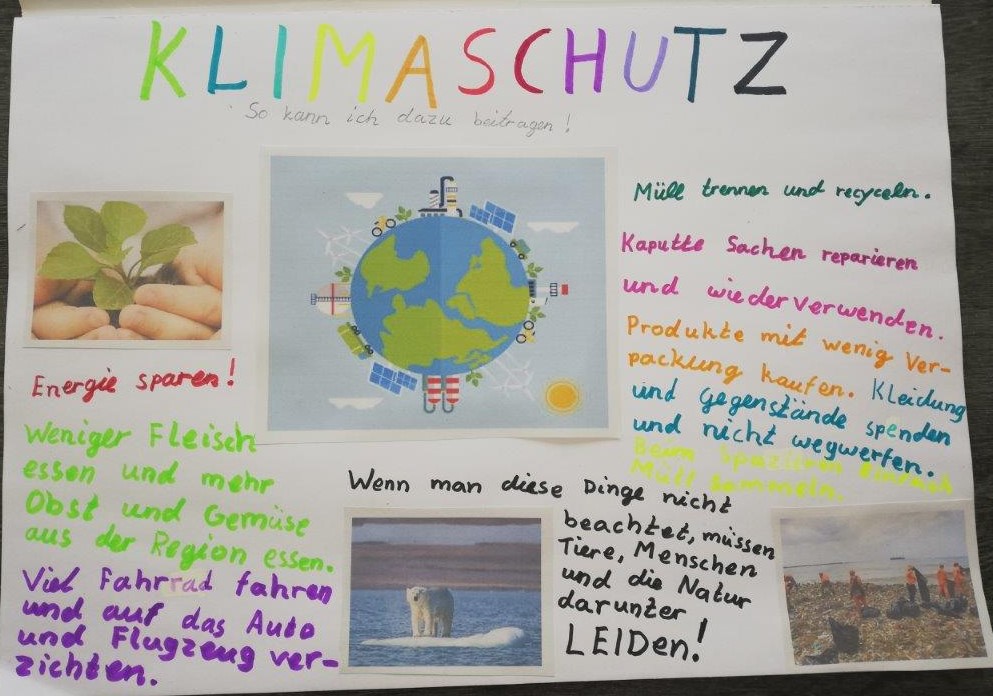 KLIMASCHUTZ
So kann ich dazu beitragen!
Energie sparen!
Weniger Fleisch
essen und mehr
Obst und Gemüse
aus der Region essen.
Viel Fahrrad fahren
und auf das Auto
und Flugzeug ver-
zichten.
Müll trennen und recyceln.
Kaputte Sachen reparieren
und wiederverwenden.
Produkte mit wenig Ver-
packung kaufen. Kleidung
und Gegenstände spenden
und nicht wegwerfen.
Beim Spazieren einfach
Müll sammeln.
Wenn man diese Dinge nicht
beachtet, müssen
Tiere, Menschen
und die Natur
darunter
LEIDEN!